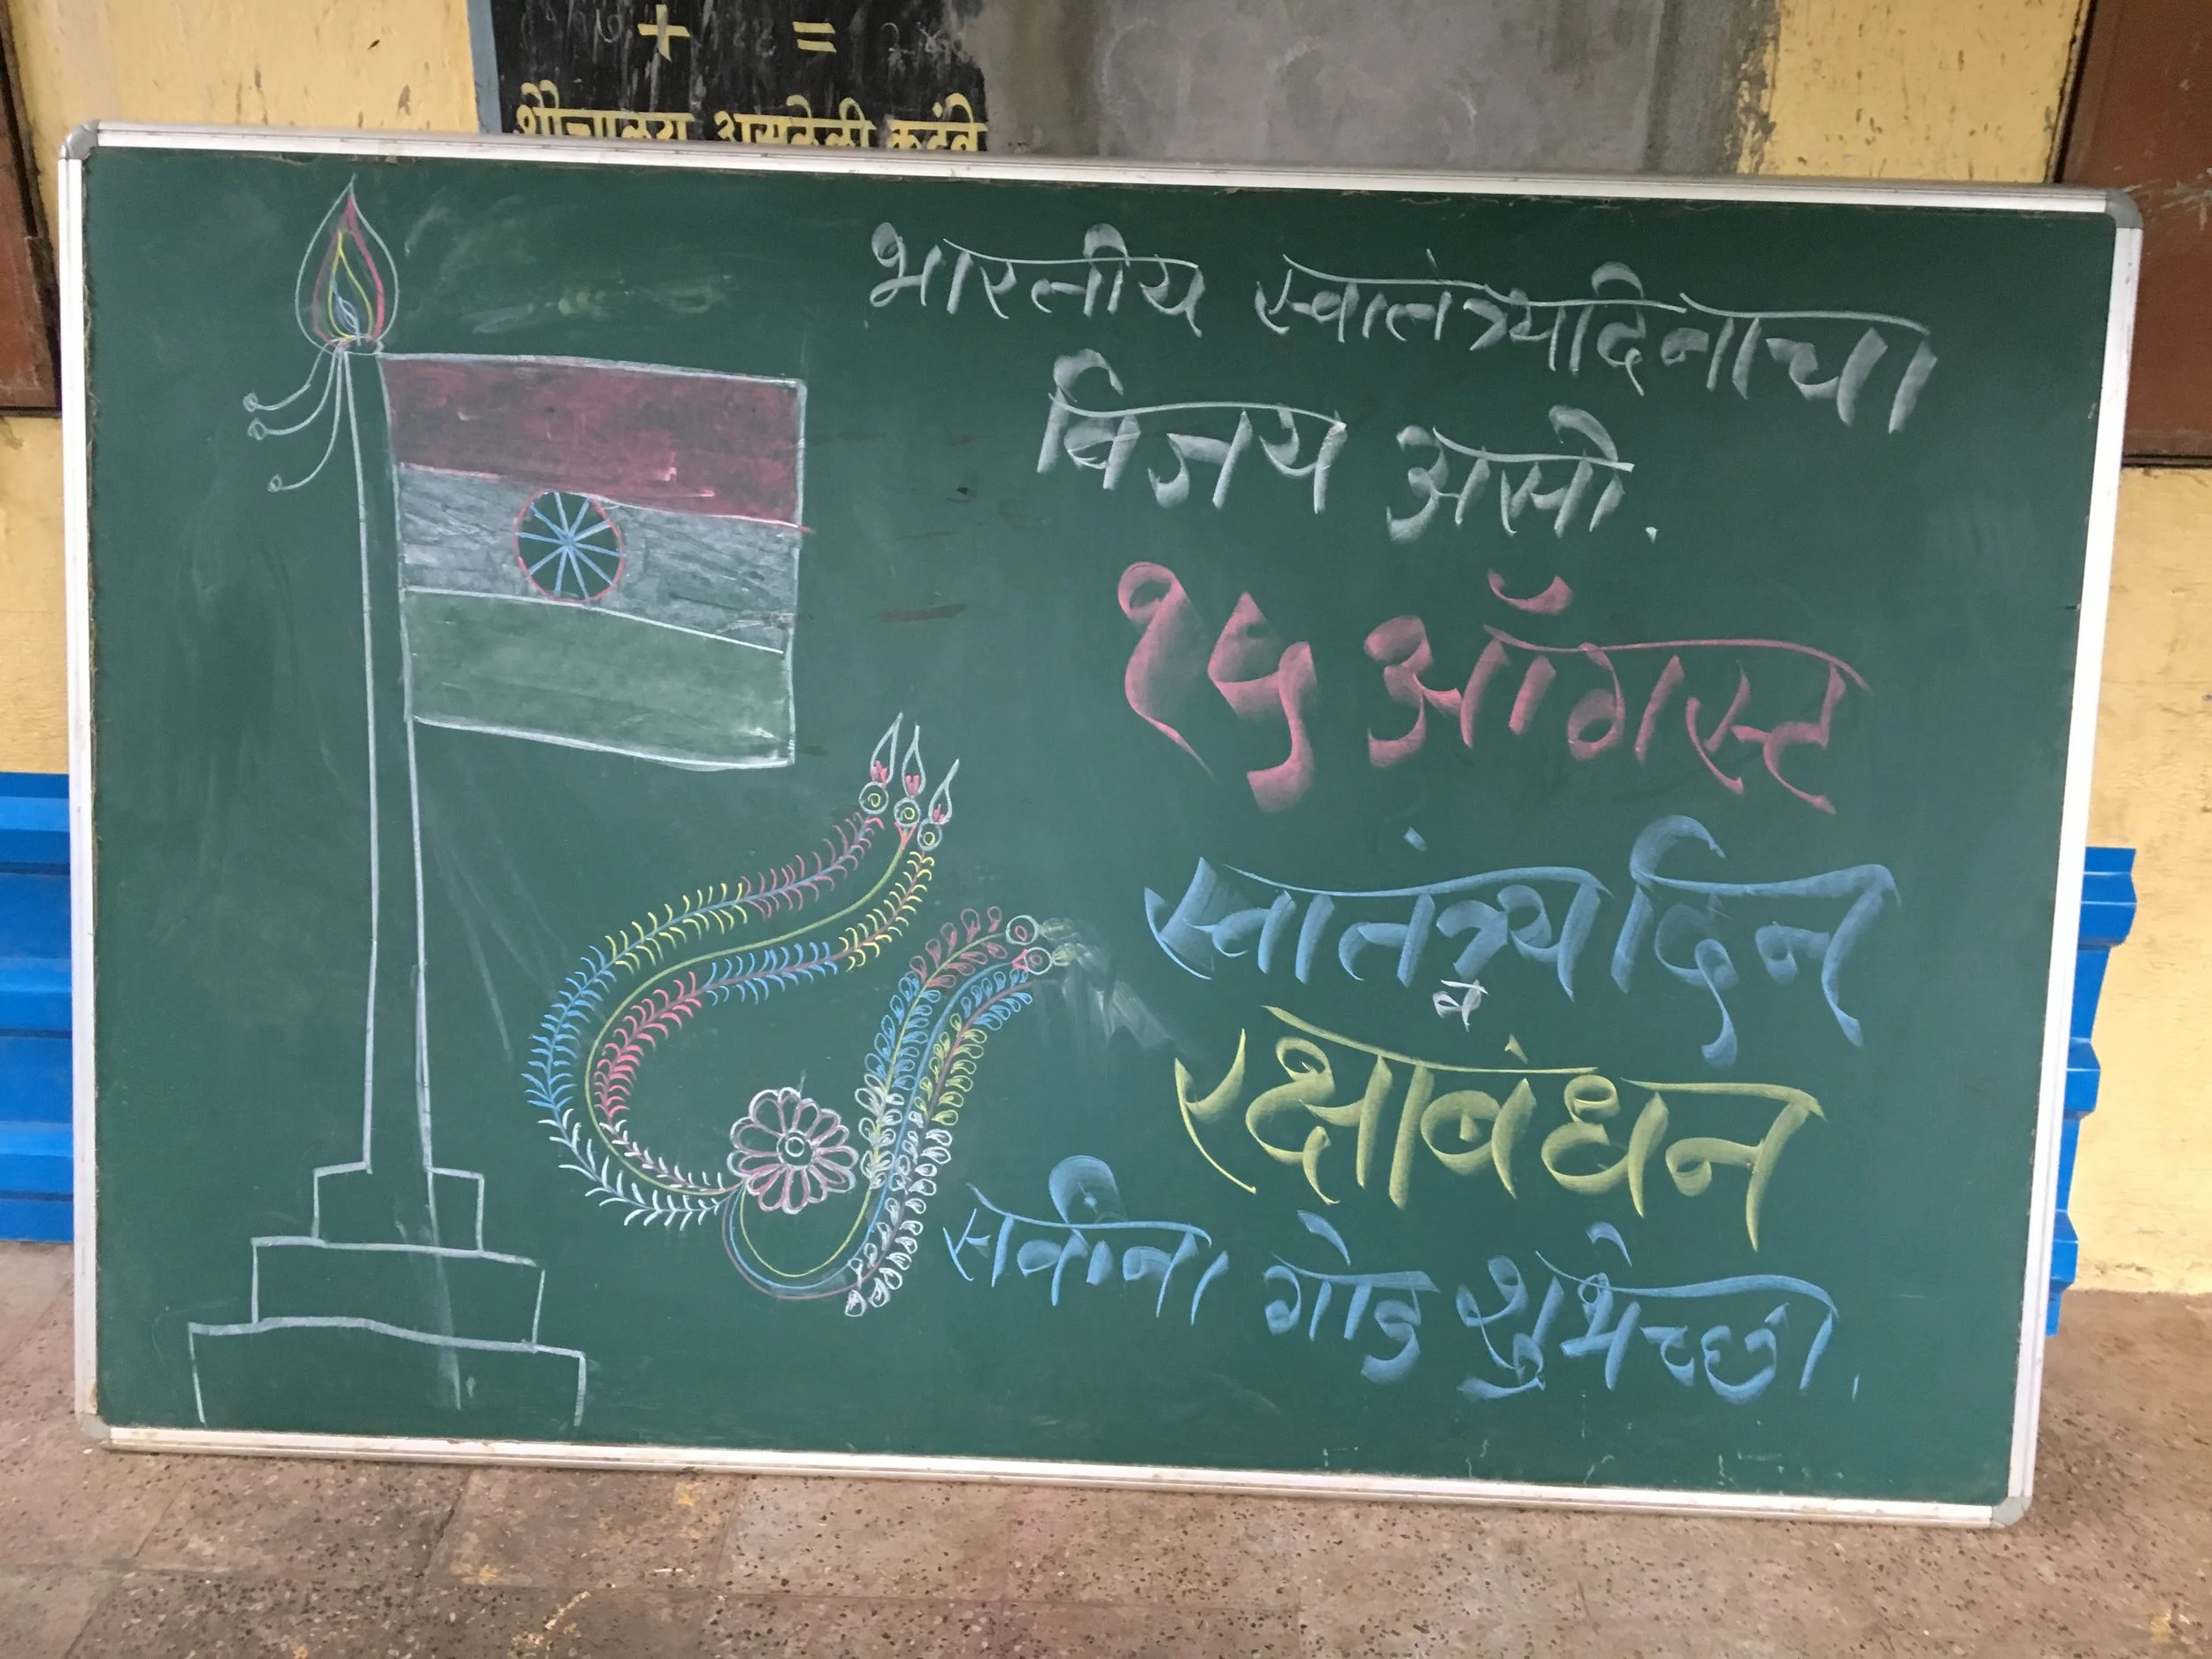 + =
शौचालय असलेली कुटुंबे
भारतीय स्वातंत्र्यदिनाचा
विजय असो.
१५ ऑगस्ट
स्वातंत्र्यदिन
व
रक्षाबंधन
सर्वांना गोड शुभेच्छा.